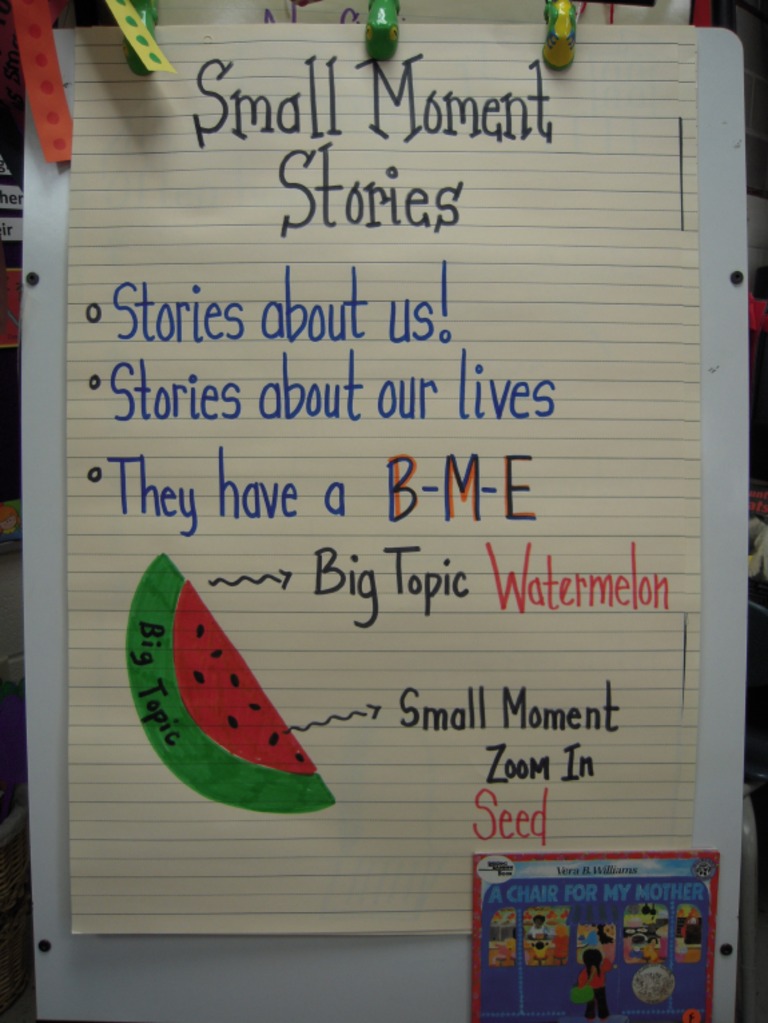 Small Moment
Stories
Stories about us!
Stories about our lives
They have a B-M-E
Big Topic Watermelon
Big Topic
Small Moment
Zoom In
Seed
Vera B. Williams
A CHAIR FOR MY MOTHER